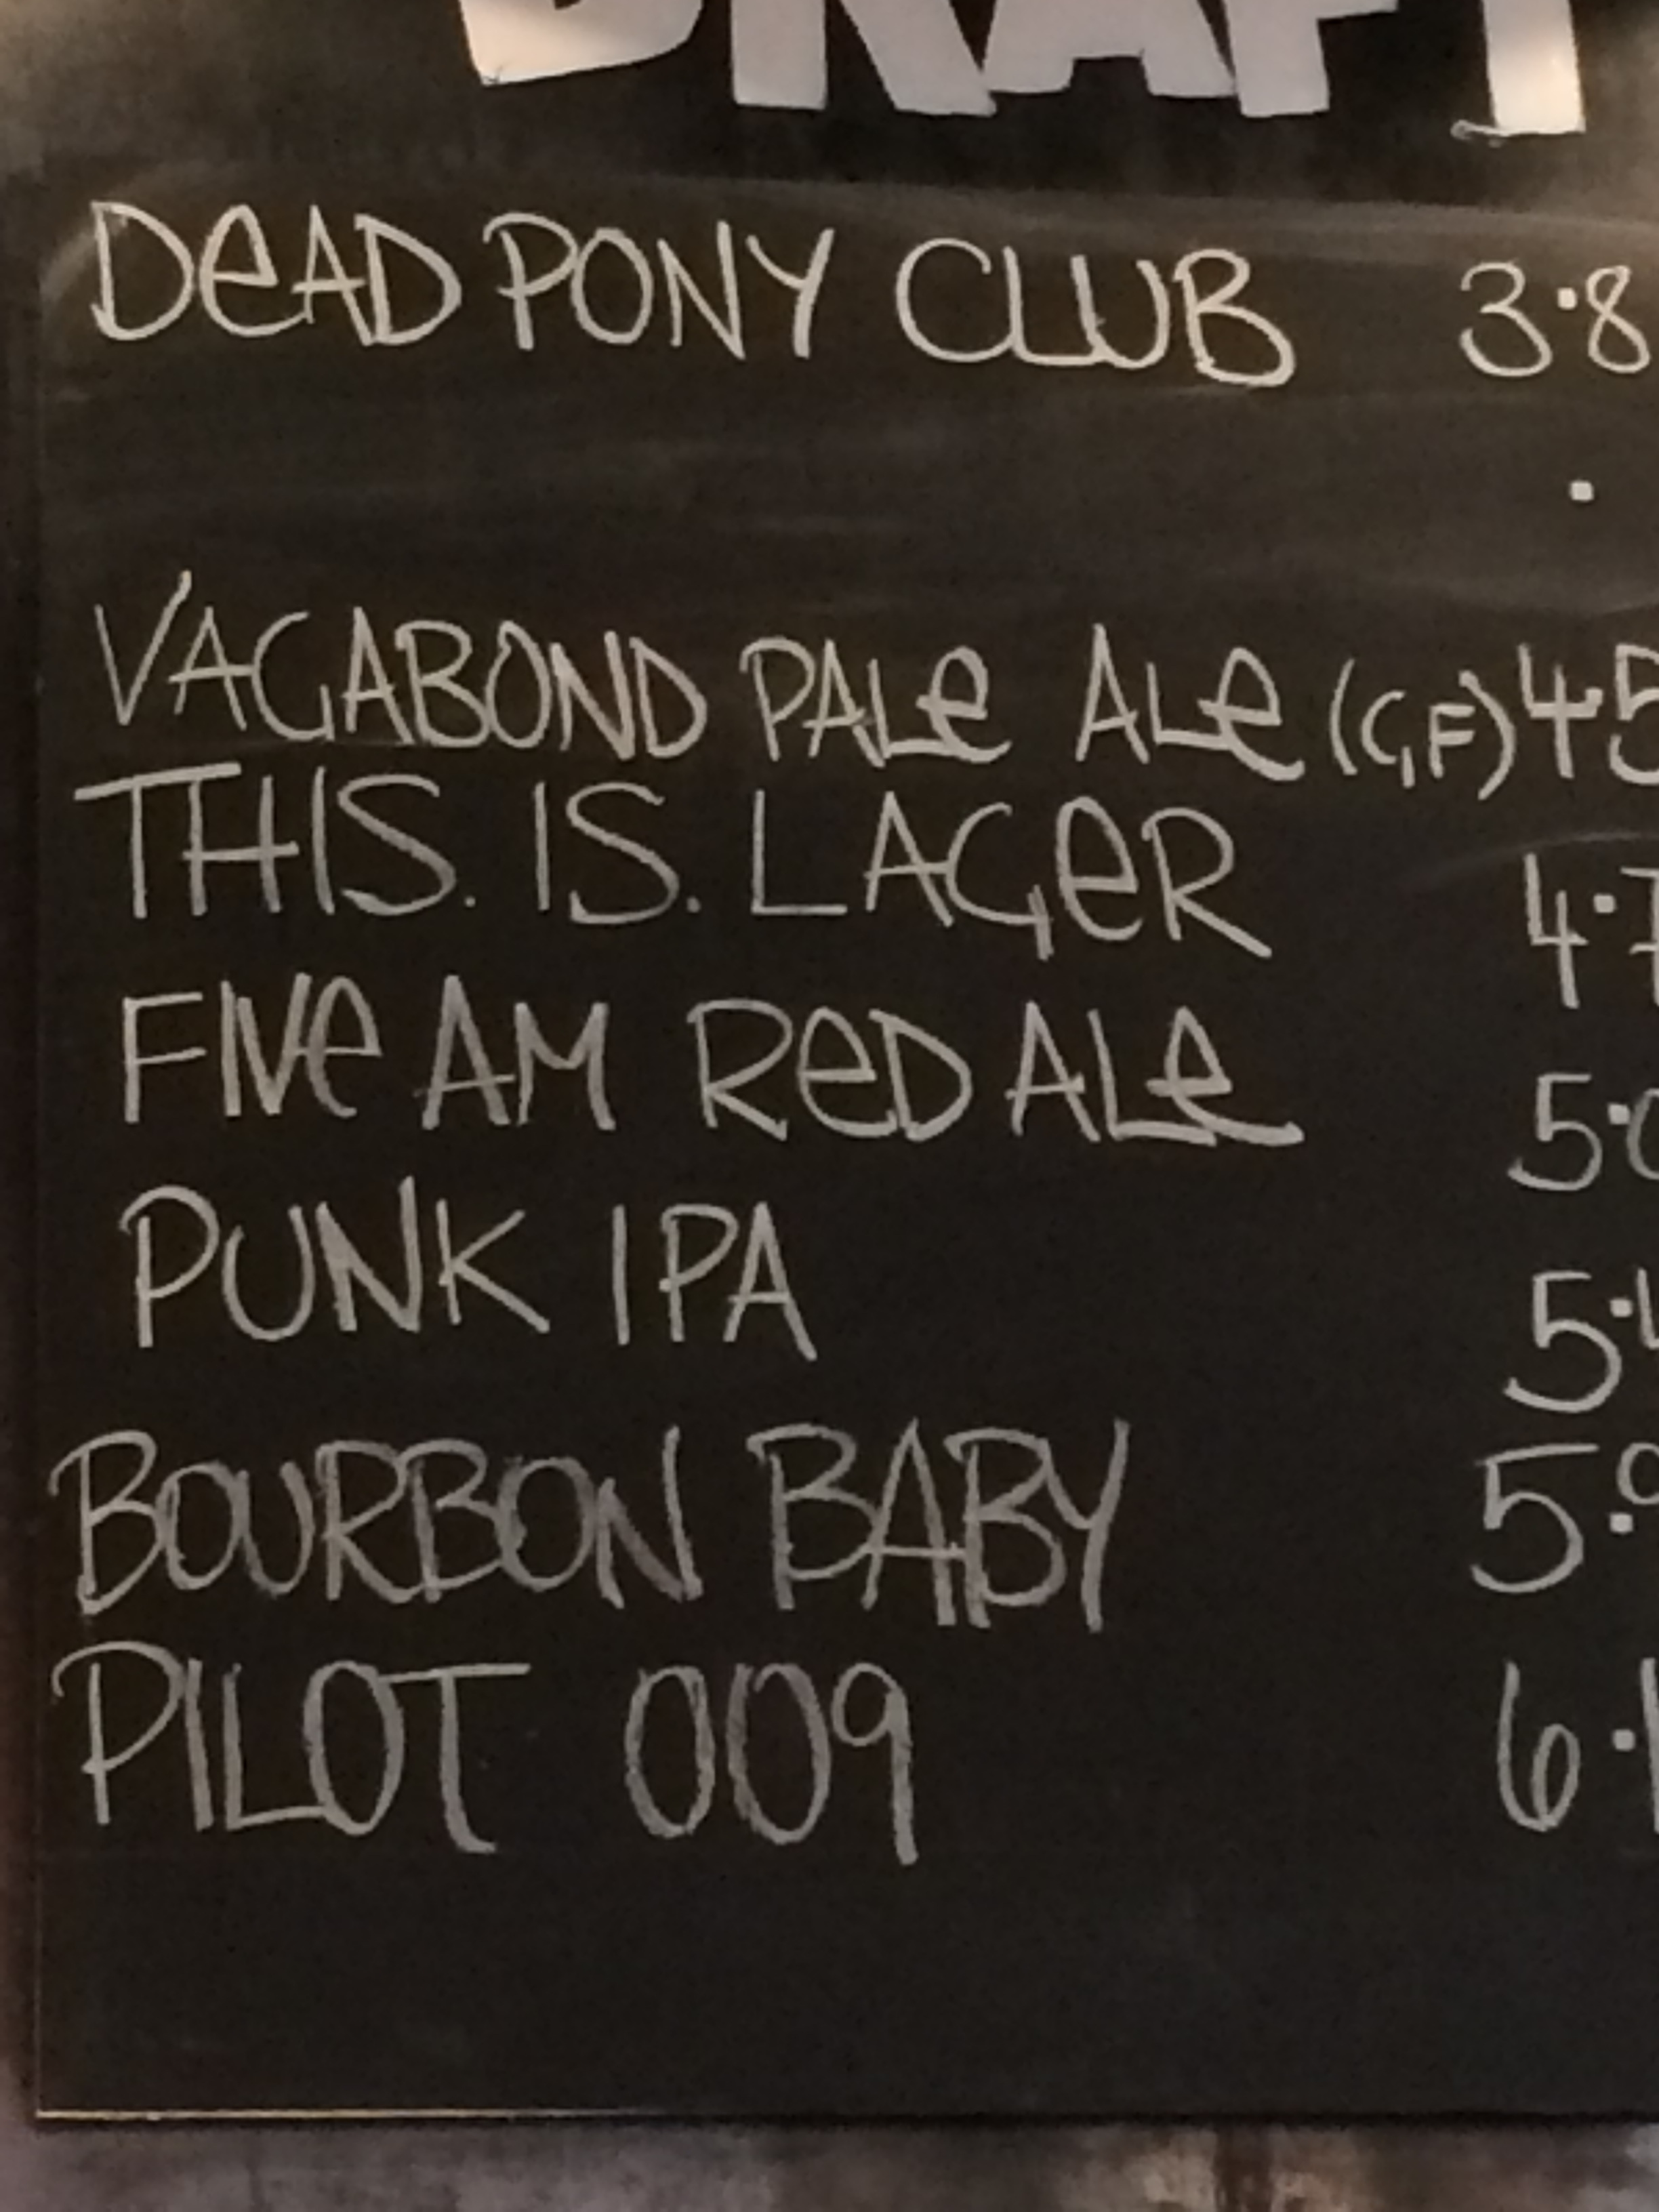 DRAFT
DeAD PONY CLUB 3.8
.
VAGABOND PALe ALe (GF) 4.5
THIS. IS. LAGeR 4.7
FIVe AM ReD ALe 5.0
PUNK IPA 5.
BOURBON BABY 5.
PILOT 009 6.1